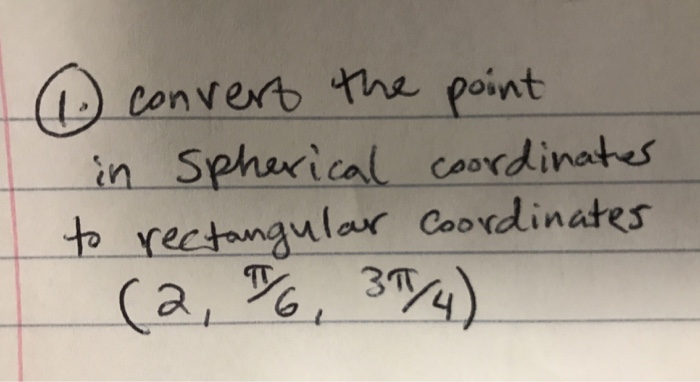 1. convert the point
in Spherical coordinates
to rectangular coordinates
(2, π/6, 3π/4)